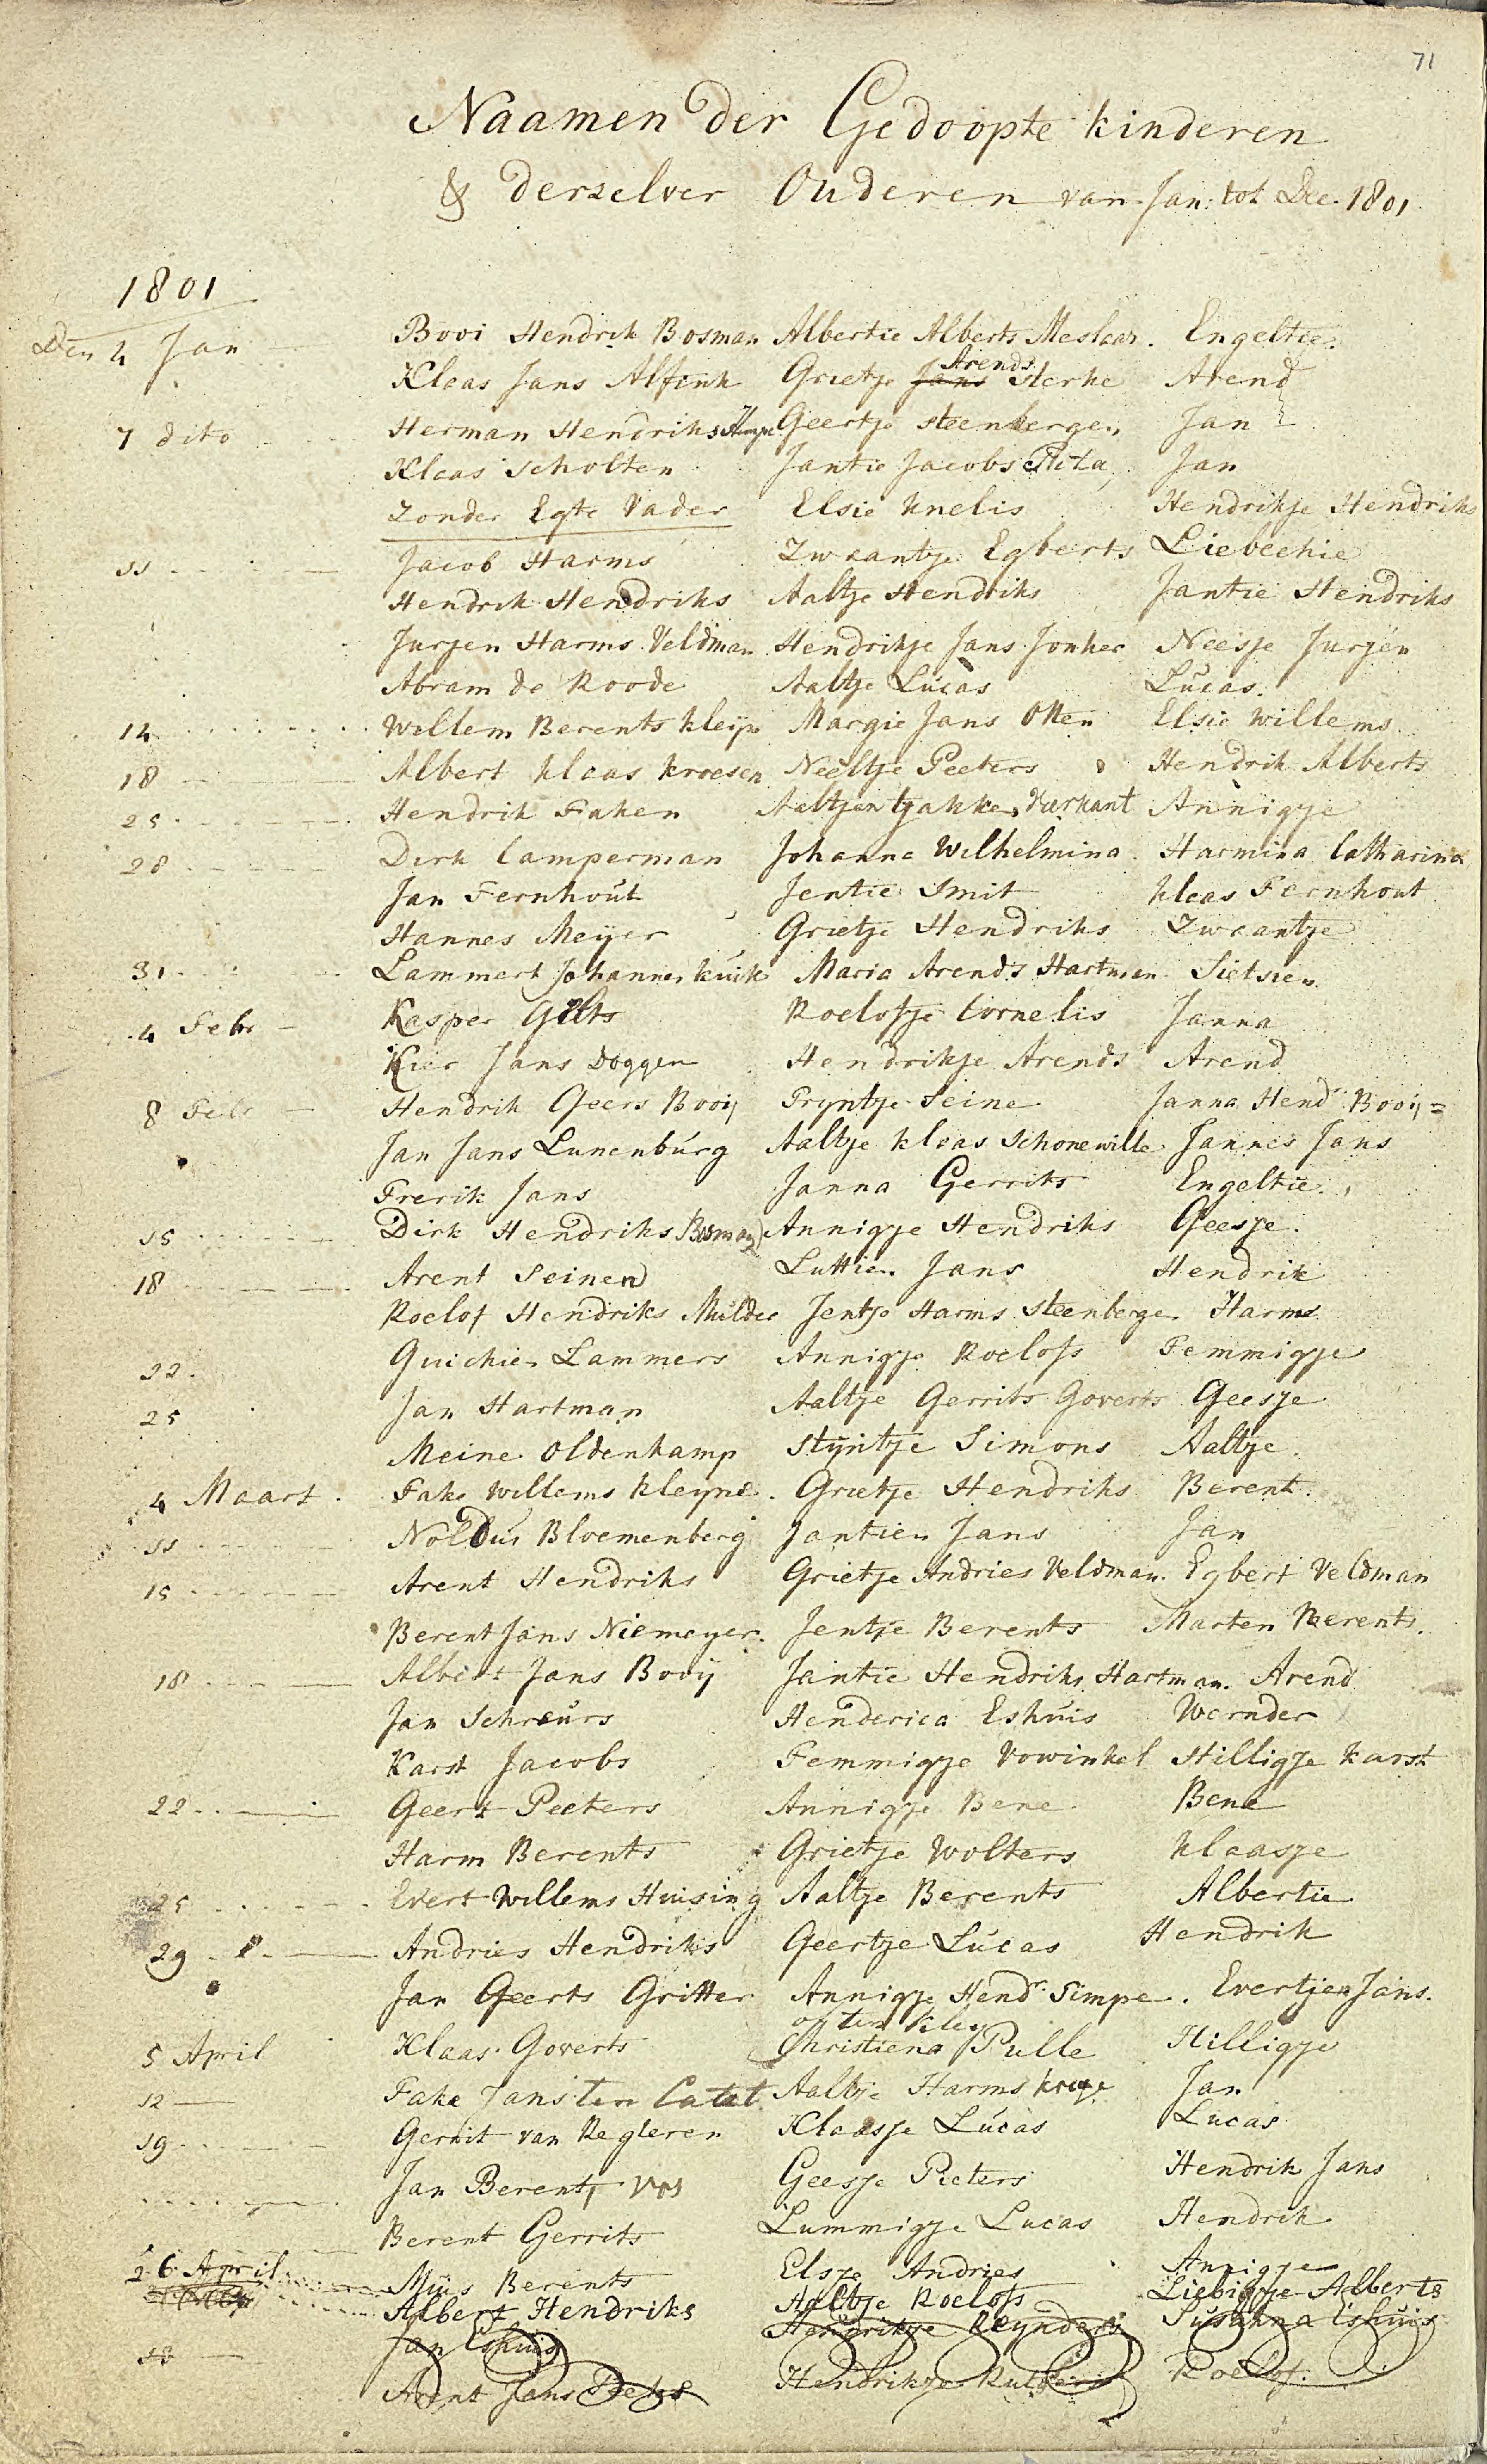 71
Naamen der Gedoopte kinderen
& derzelver Ouderen van Jan: tot Dec. 1801
1801
Den 4 Jan Booi Hendrik Bosman Albertie Alberts Meslaar. Engeltie.
Arends
Klaas Jans Alfink Grietje Jans Sterke Arend
7 dito Herman Hendriks Geertje Steenbergen Jan
Klaas Scholten Jantie Jacobs Jan
Zonder Egte Vader Elsie Knelis Hendrikje Hendriks
11 Jacob Harms Zwaantje Egberts Liebechie
Hendrik Hendriks Aaltje Hendriks Jantie Hendriks
Jurjen Harms Veldman Hendrikje Jans Jonker Neesje Jurjen
Abram de Roode Aaltje Lucas Lucas.
14 Willem Berents Kleijn Margie Jans Otten Elsie Willems
18 Albert Klaas Kroesen Neeltje Peeters Hendrik Alberts
25 Hendrik Faken Aaltjen Vierkant Annigje
28 Dirk Camperman Johanna Wilhelmina Harmina Catharina
Jan Fernhout Jentie Smit Klaas Fernhout
Hannes Meijer Grietje Hendriks Zwaantje
31 Lammert Johannes Kuik Maria Arends Hartman Sietsien
4 Febr Kasper Gilts Roelofje Cornelis Janna
Kier Jans Doggen Hendrikje Arends Arend
8 Febr Hendrik Geers Booij Tryntje Seine Janna Hendr Booij=
Jan Jans Lunenburg Aaltje Klaas Schonewille Jannes Jans
Frerik Jans Janna Gerrits Engeltie.
15 Dirk Hendriks Bosman Annigje Hendriks Geesje.
18 Arent Seinen Luttien Jans Hendrik
Roelof Hendriks Mulder Jentje Harms Steenberge Harms
22. Guichien Lammers Annigje Roelofs Femmigje
25 Jan Hartman Aaltje Gerrits Goverts Geesje
Meine Oldenkamp Styntje Simons Aaltje.
4 Maart. Fake Willems Kleyne. Grietje Hendriks Berent.
11 Noldus Bloemenberg Jantien Jans Jan
15 Arent Hendriks Grietje Andries Veldman. Egbert Veldman
Berent Jans Niemeyer. Jentje Berents Marten Berents.
18 Albert Jans Booij Jantie Hendriks Hartman. Arend
Jan Schreurs Henderica Eshuis Wernder
Karst Jacobs Femmigje Vowinkel Hilligje Karst
22 Geert Peeters Annigje Bene Bene
Harm Berents Grietje Wolters Klaasje
25 Evert Willems Huising Aaltje Berents Albertie
29 Andries Hendriks Geertje Lucas Hendrik
Jan Geerts Gritter Annigje Hendr. Simpe. Evertjen Jans.
5 April Klaas Goverts Christiena Pulle Hilligje
12 Fake Jans Ten Catet Aaltje Harms Jan
19 Gerrit van Regteren Klaasje Lucas Lucas.
Jan Berents Vos Geesje Pieters Hendrik Jans
Berent Gerrits Lummigje Lucas Hendrik
26 April Mijns Berents Elsje Andries Annigje
Albert Hendriks Aaltje Roelofs Liebigje Alberts
Jan Eshuis Hendrikje Reynders Susanna Eshuis
Arent Jans Hendrikje Rutgers Roelof.